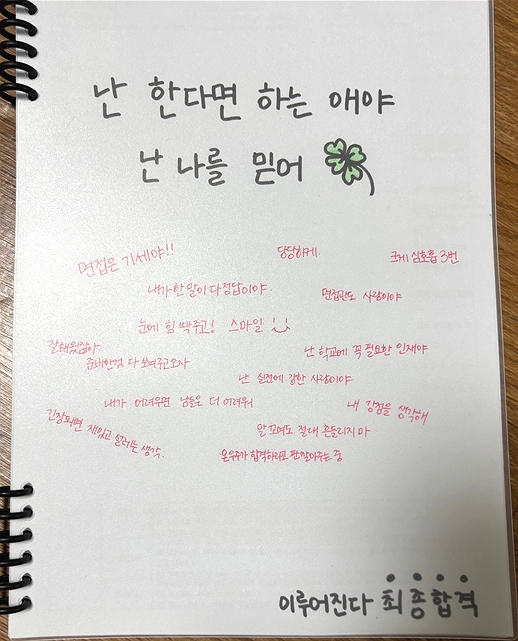 난 한다면 하는 애야
난 나를 믿어
면접은 기세야!!
당당하게.
크게 심호흡 3번
내가 한 말이 다 정답이야.
면접관도 사람이야
눈에 힘 빡주고! 스마일
잘해왔잖아
준비한것 다 보여주고오자
난 학교에 꼭 필요한 인재야
난 실전에 강한 사람이야
내가 어려우면 남들은 더 어려워
내 강점을 생각해
긴장되면 재밌고 설레는 생각.
말 꼬여도 절대 흔들리지마
온우주가 합격하라고 판 깔아주는 중
이루어진다 최종합격